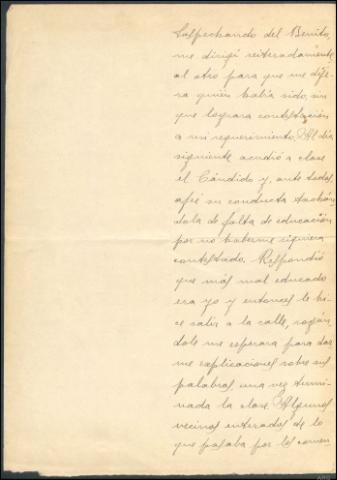 Sospechando del Benito,
me dirigí reiteradamente
al otro para que me dije-
ra quién había sido, sin
que lograra contestación
a mi requerimiento. Al día
siguiente acudió a clase
el Cándido y, ante todos,
afeé su conducta tachán-
dola de falta de educación
por no haberme siquiera
contestado. Respondió
que más mal educado
era yo y entonces le hi-
ce salir a la calle, rogán-
dole me esperara para dar-
me explicaciones sobre sus
palabras una vez termi-
nada la clase. Algunos
vecinos enterados de lo
que pasaba por los comen-